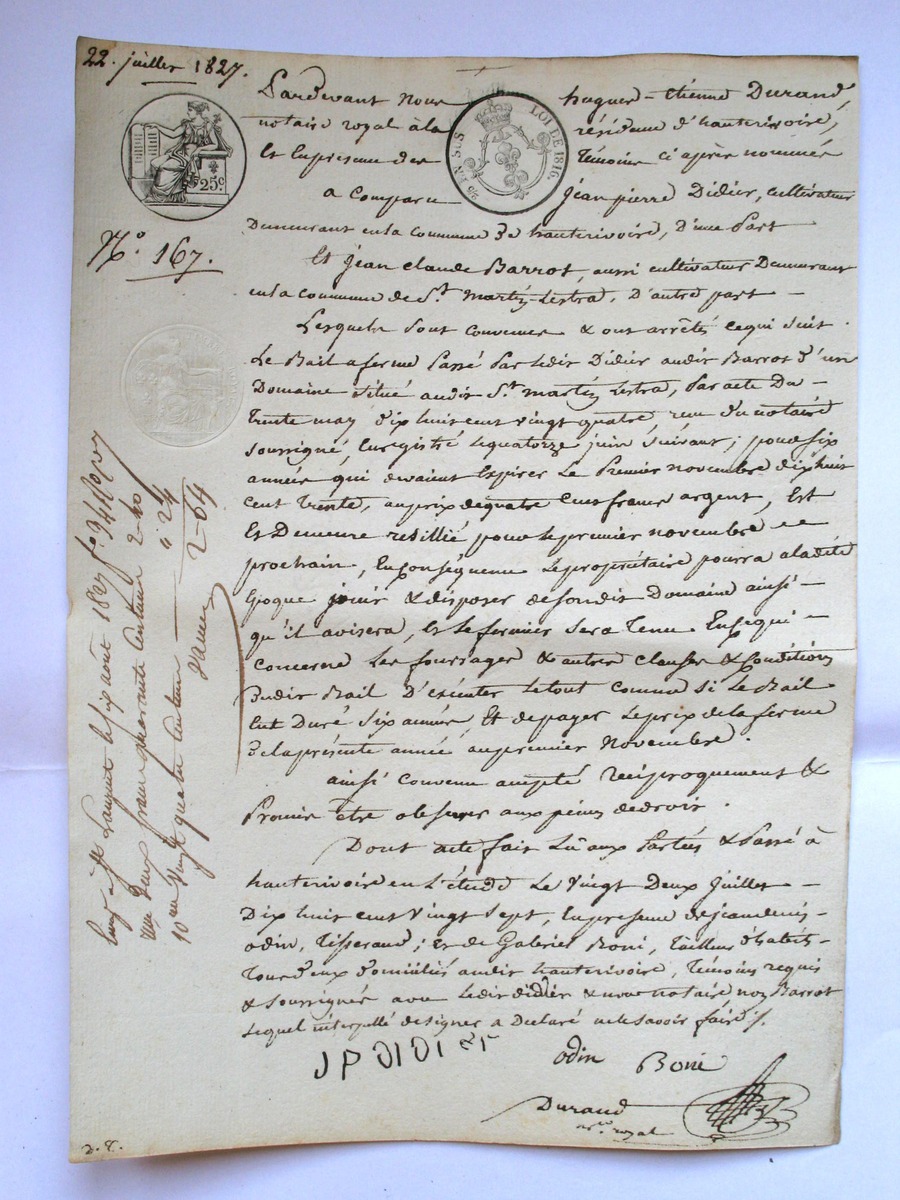 22. juillet 1827.
Pardevant nous hugues-étienne Durand,
notaire royal à la résidence d'hauterivoire,
Et En présence des Témoins ci après nommés
25c.
EN SUS LOI DE 1816.
a Comparu Jean pierre Didier, cultivateur
Demeurant en la Commune de hauterivoire, d'une Part
N.o 167.
Et Jean Claude Barrot, aussi cultivateur Demeurant
en la commune de St. martin-lestra, D'autre part
Lesquels sont convenus & ont arrêtés ce qui suit.
Le Bail a ferme Passé Par ledit Didier audit Barrot d'un
Domaine situé audit St. martin lestra, Par acte Du
trente may dix huit cent vingt quatre, reçu du notaire
soussigné, Enregistré le quatorze juin suivant; pour six
années qui devaient Expirer le Premier novembre dix huit
cent trente, au prix de quatre cens francs argent, Est
Et Demeure résillié pour le premier novembre
prochain, En conséquence le propriétaire pourra a ladite
Epoque jouir & disposer de sondit Domaine ainsi
qu'il avisera, et le fermier sera Tenu En ce qui
concerne les fourrages & autres clauses & Conditions
Dudit Bail D'exécuter le tout comme si le Bail
Eut Duré six années, Et de payer le prix de la ferme
de la présente année au premier Novembre.
ainsi Convenu accepté réciproquement &
Promis Etre observer aux peines de droit.
Dont acte fait Lû aux Parties & Passé à
hauterivoire en L'étude Le Vingt Deux Juillet
Dix huit cent vingt sept, En présence de jean denis
odin, Tisserand; Et de Gabriel Boni, Tailleur d'habits
Tous deux domiciliés audit hauterivoire, Témoins requis
& soussignés avec ledit didier & nous notaire non Barrot
lequel interpellé de signer a Déclaré ne le savoir faire ./.
J P DIDIER
odin Boni
Durand
nre. royal
Enregé à St Laurent le six août 1827 fo
reçu deux francs quarante centimes 2-40
10me vingt quatre centimes " 24
2-64